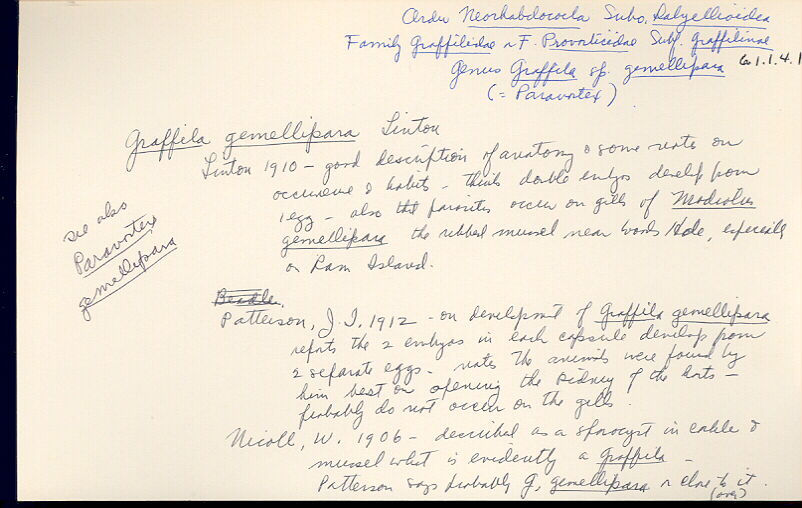 Order Neorhabdocoela Subo. Dalyellioidea
Family Graffilidae or F. Provorticidae Subf. Graffilinae
Genus Graffila sp. gemellipara 6.1.1.4.1
(= Paravortex)
Graffila gemellipara Linton
Linton 1910 - good description of anatomy & some note on
occurrence & habits - thinks double embryo develop from
1 egg - also tht parasites occur on gills of Modiolus
gemellipara the ribbed mussel near Woods Hole, especially
on Ram Island.
see also
Paravortex
gemellipara
Beadle.
Patterson, J.T. 1912 - on development of Graffila gemellipara
reports the 2 embryos in each capsule develop from
2 separate eggs - notes the animals were found by
him best on opening the kidney of the hosts -
probably do not occur on the gills.
Nicoll, W. 1906 - described as a sporocyst in cockle &
mussel what is evidently a Graffila -
Patterson says probably G. gemellipara or close to it.
(over)